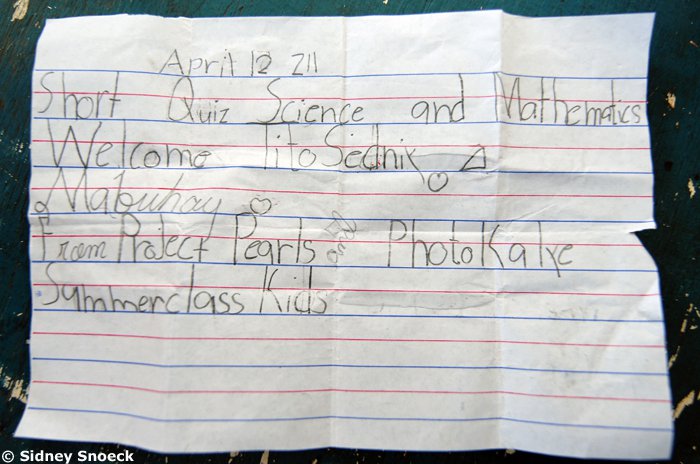 April 12 211
Short Quiz Science and Mathematics
Welcome Tito Sednik
Mabuhay
From Project Pearls PhotoKaKe
Summerclass Kids
© Sidney Snoeck